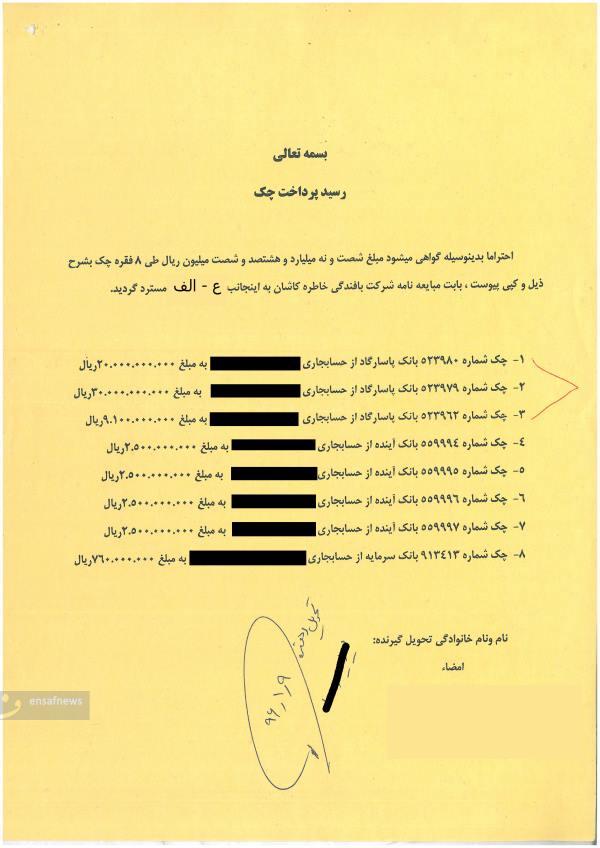 بسمه تعالی
رسید پرداخت چک
احتراما بدینوسیله گواهی میشود مبلغ شصت و نه میلیارد و هشتصد و شصت میلیون ریال طی ۸ فقره چک بشرح
ذیل و کپی پیوست ، بابت مبایعه نامه شرکت بافندگی خاطره کاشان به اینجانب ع - الف مسترد گردید.
۱- چک شماره ۵۲۳۹۸۰ بانک پاسارگاد از حسابجاری به مبلغ ۲۰.۰۰۰.۰۰۰.۰۰۰ریال
۲- چک شماره ۵۲۳۹۷۹ بانک پاسارگاد از حسابجاری به مبلغ ۳۰.۰۰۰.۰۰۰.۰۰۰ریال
۳- چک شماره ۵۲۳۹۶۲ بانک پاسارگاد از حسابجاری به مبلغ ۹.۱۰۰.۰۰۰.۰۰۰ریال
۴- چک شماره ۵۵۹۹۹۴ بانک آینده از حسابجاری به مبلغ ۲.۵۰۰.۰۰۰.۰۰۰ریال
۵- چک شماره ۵۵۹۹۹۵ بانک آینده از حسابجاری به مبلغ ۲.۵۰۰.۰۰۰.۰۰۰ریال
۶- چک شماره ۵۵۹۹۹۶ بانک آینده از حسابجاری به مبلغ ۲.۵۰۰.۰۰۰.۰۰۰ریال
۷- چک شماره ۵۵۹۹۹۷ بانک آینده از حسابجاری به مبلغ ۲.۵۰۰.۰۰۰.۰۰۰ریال
۸- چک شماره ۹۱۳۴۱۳ بانک سرمایه از حسابجاری به مبلغ ۷۶۰.۰۰۰.۰۰۰ریال
نام ونام خانوادگی تحویل گیرنده:
امضاء
تحویل
۹۶/۱/۹
ensafnews